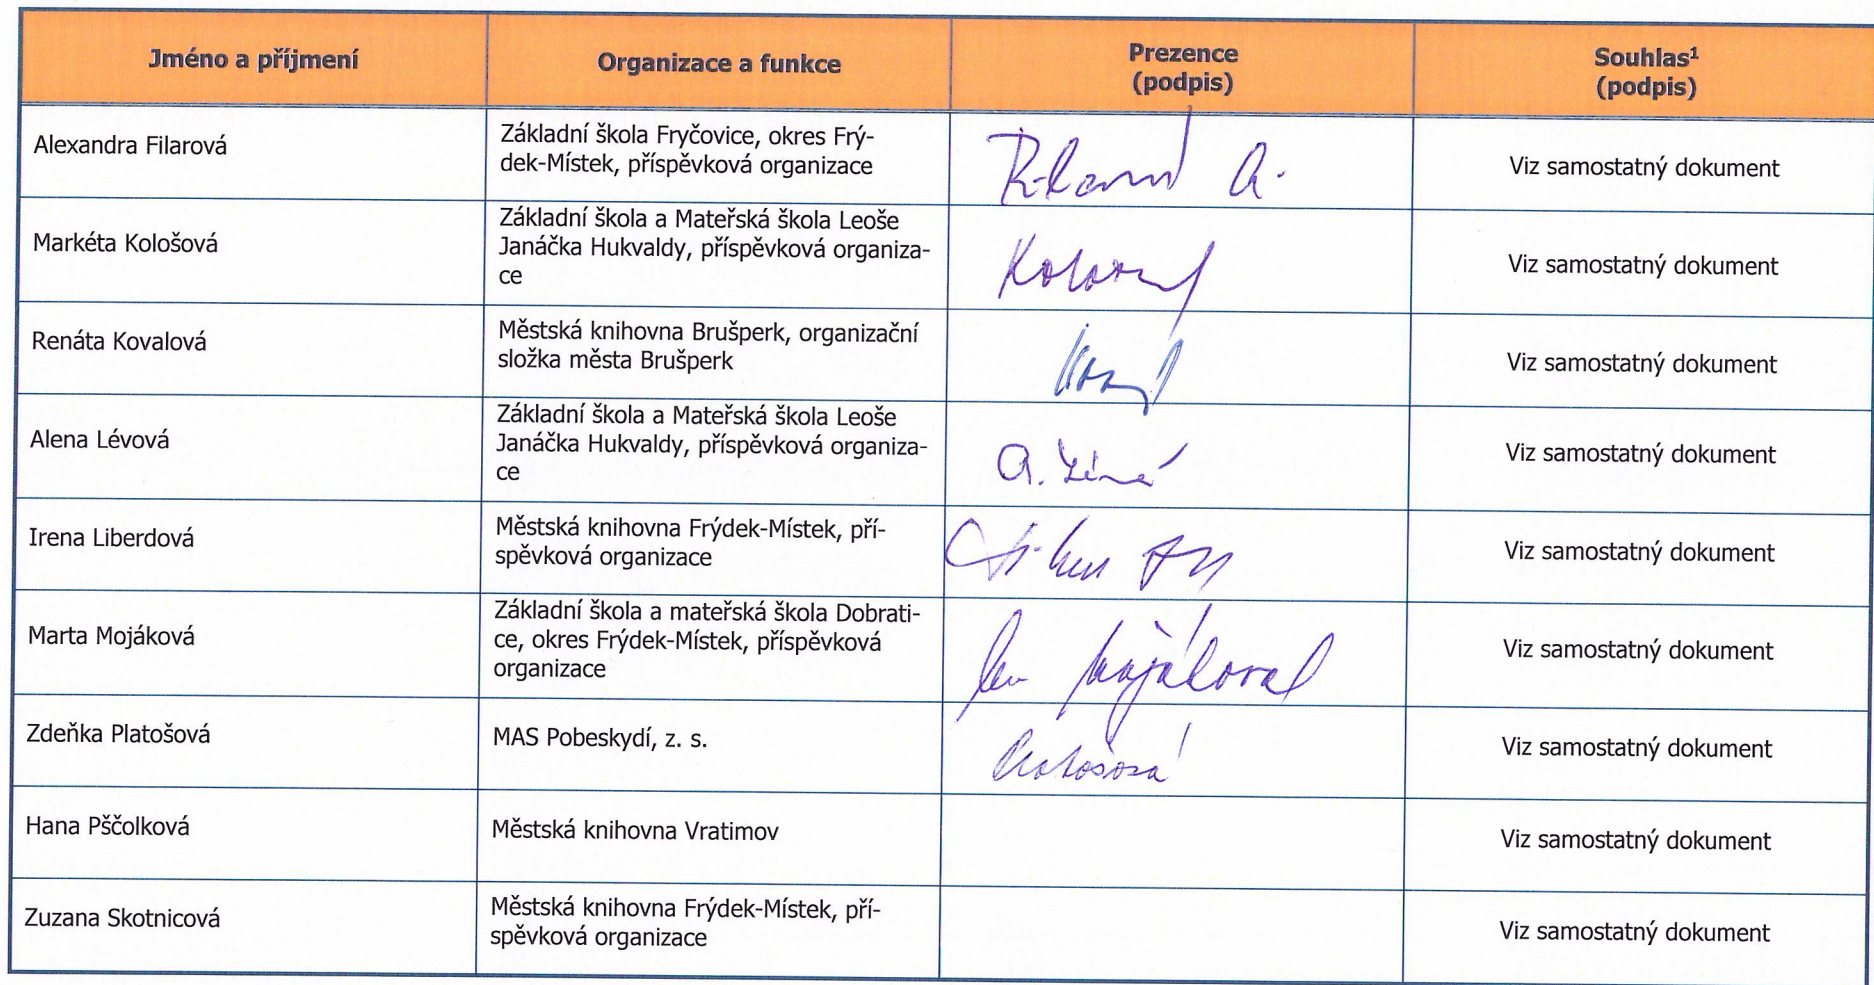 Jméno a příjmení
Organizace a funkce
Prezence
(podpis)
Souhlas¹
(podpis)
Alexandra Filarová
Základní škola Fryčovice, okres Frý-
dek-Místek, příspěvková organizace
Viz samostatný dokument
Markéta Kološová
Základní škola a Mateřská škola Leoše
Janáčka Hukvaldy, příspěvková organiza-
ce
Viz samostatný dokument
Renáta Kovalová
Městská knihovna Brušperk, organizační
složka města Brušperk
Viz samostatný dokument
Alena Lévová
Základní škola a Mateřská škola Leoše
Janáčka Hukvaldy, příspěvková organiza-
ce
Viz samostatný dokument
Irena Liberdová
Městská knihovna Frýdek-Místek, pří-
spěvková organizace
Viz samostatný dokument
Marta Mojáková
Základní škola a mateřská škola Dobrati-
ce, okres Frýdek-Místek, příspěvková
organizace
Viz samostatný dokument
Zdeňka Platošová
MAS Pobeskydí, z. s.
Viz samostatný dokument
Hana Pščolková
Městská knihovna Vratimov
Viz samostatný dokument
Zuzana Skotnicová
Městská knihovna Frýdek-Místek, pří-
spěvková organizace
Viz samostatný dokument